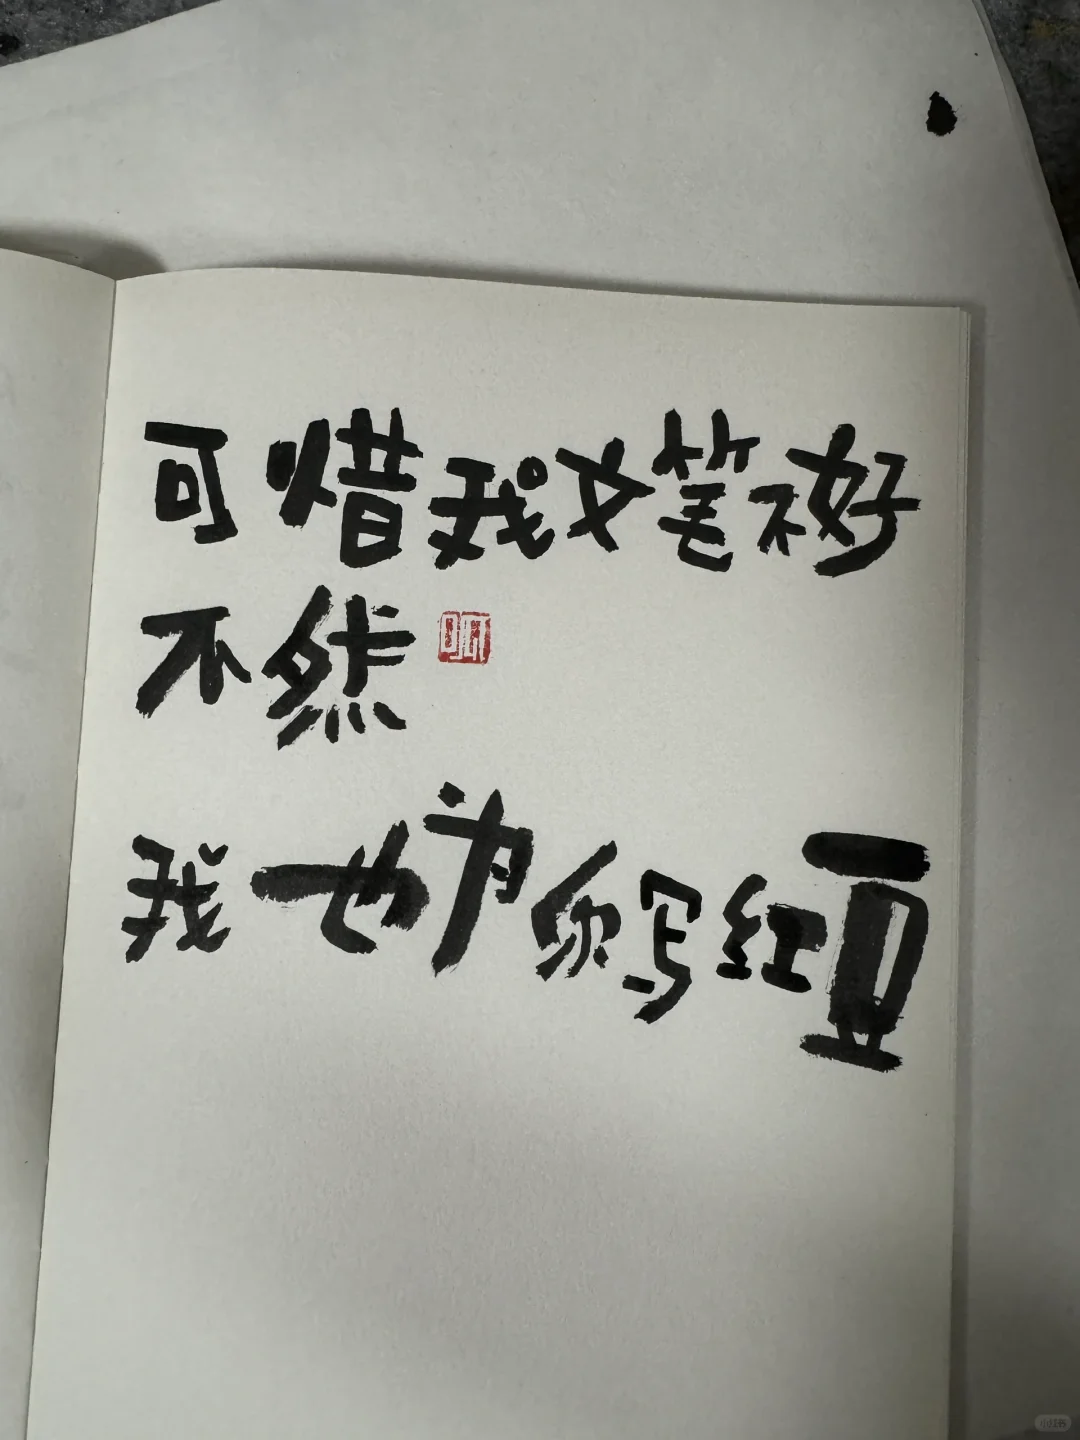 可惜我文笔不好
不然
我也为你写红豆